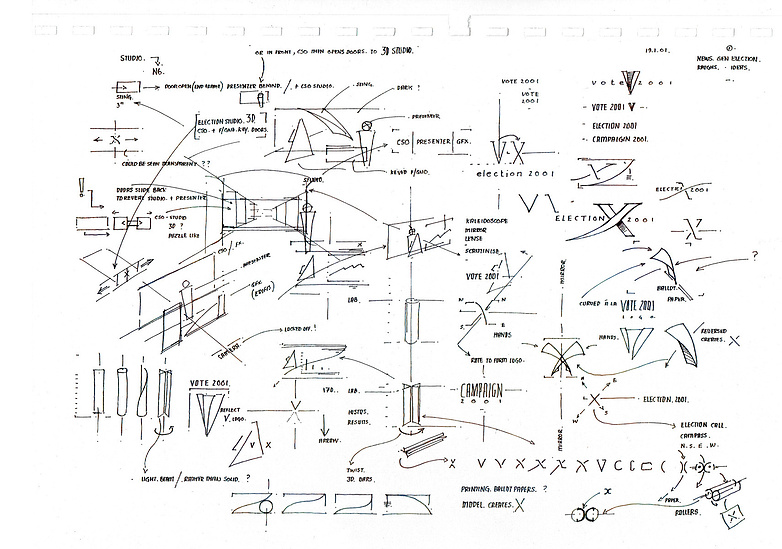 OR IN FRONT, CSO THEN OPENS DOORS. TO 3D STUDIO.
19.1.01.
NEWS. GEN ELECTION.
ROUGHS. + IDEAS.
STUDIO.
N6.
DOOR OPEN (END FRAME) PRESENTER BEHIND. / . + CSO STUDIO.
STING.
DARK?
STING
3"
VOTE 2001
VOTE
2001
vote 2001
- VOTE 2001 V -
- ELECTION 2001
- CAMPAIGN 2001.
ELECTION STUDIO. 3D.
CSO. + F/GND. KEY. DOORS.
PRESENTER
CSO PRESENTER GFX.
V X
X
COULD BE SEEN TRANSPARENT ??
KEYED F/GND.
election 2001
STUDIO.
!
DOORS SLIDE BACK
TO REVEAL STUDIO. + PRESENTER
CSO - STUDIO
3D ?
PUZZLE LIKE
ELECTION 2001
KALEIDOSCOPE
MIRROR
LENSE
SCRUTINISE.
CSO / FX.
PRESENTER
GFX
VOTE 2001
MIRROR
?
BALLOT
PAPER.
CURVED A LA VOTE 2001
CAMERA
LOCKED OFF ?
LAB.
N
S E
HANDS
HANDS.
REVERSED
CREATES. X
ROTE TO FORM LOGO.
VOTE 2001.
REFLECT
V. LOGO.
V X
170.
LAB.
ARROW.
CAMPAIGN
2001
X
ELECTION, 2001.
MIRROR
ELECTION CALL
COMPASS.
N. S. E. W.
LIGHT. BEAM /. RATHER THAN SOLID. ?
TWIST.
3D. BARS.
X V V X X X X X V C C
PRINTING. BALLOT PAPERS. ?
MODEL. CREATES. X
X
PAPER.
ROLLERS.
X